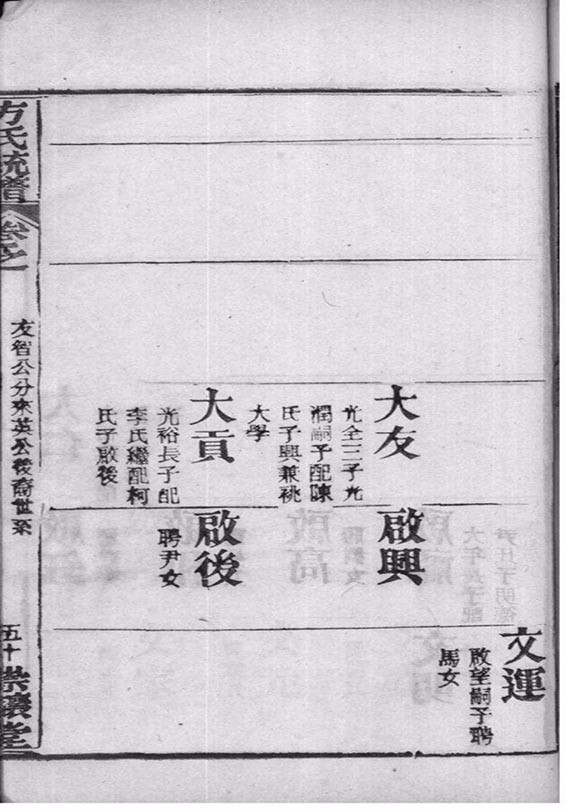 文運
啟望嗣子聘
馬女
大友
光全三子光
潤嗣子配陳
氏子興兼祧
大學
啟興
大貢
光裕長子配
李氏繼配柯
氏子啟後
啟後
聘尹女
方氏統譜
卷之
友智公分來英公後裔世系
五十
崇讓堂